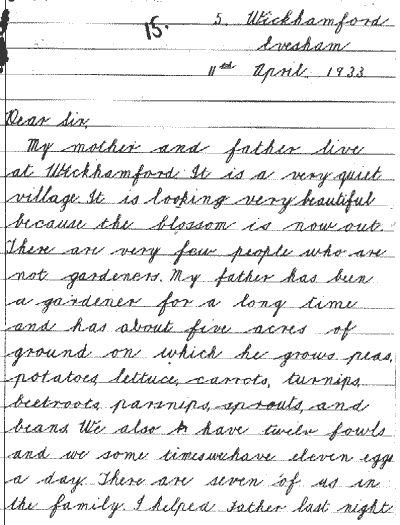 15.
5. Wickhamford
Evesham
11th April, 1933
Dear Sir,
My mother and father live
at Wickhamford. It is a very quiet
village. It is looking very beautiful
because the blossom is now out.
There are very few people who are
not gardeners. My father has been
a gardener for a long time
and has about five acres of
ground on which he grows peas,
potatoes, lettuce, carrots, turnips,
beetroots, parsnips, sprouts, and
beans. We also have twelv fowls
and we some times we have eleven eggs
a day. There are seven of us in
the family. I helped Father last night